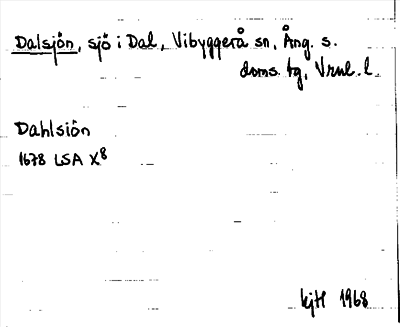 Dalsjön, sjö i Dal, Vibyggerå sn, Ång. s.
doms. tg, Vrnl. l.
Dahlsiön
1678 LSA X8
kjtl 1968